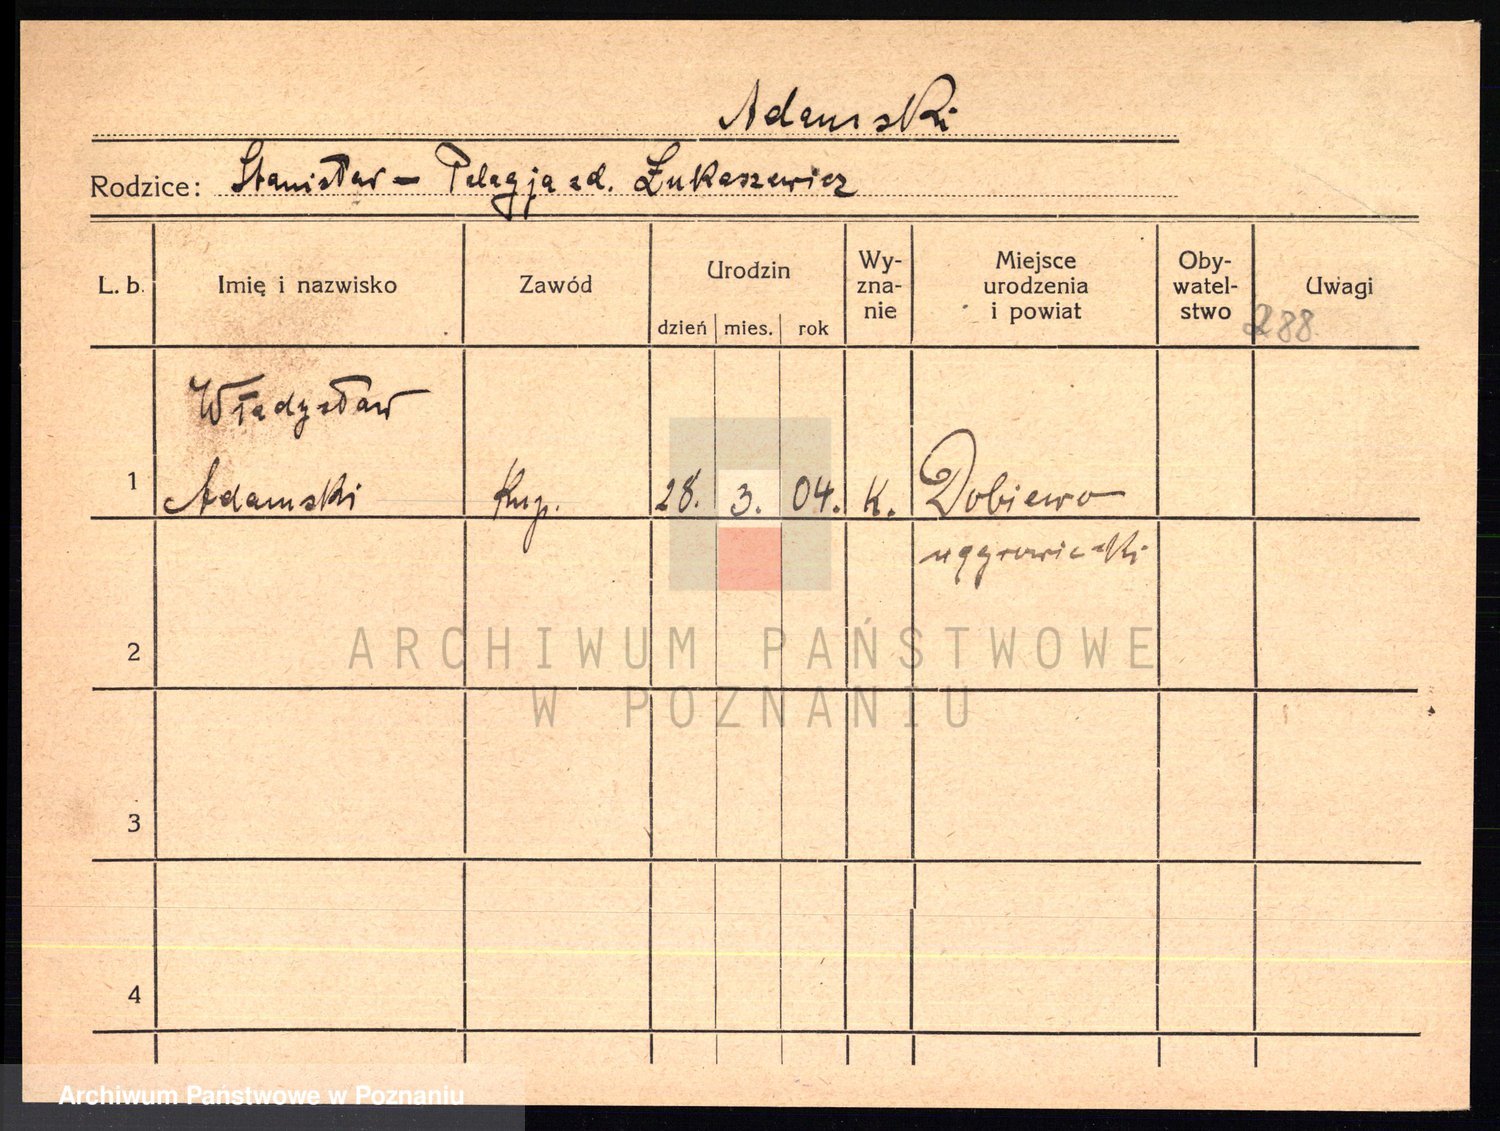 Adamski
Rodzice: Stanisław – Pelagja zd. Łukaszewicz
L. b. Imię i nazwisko Zawód Urodzin dzień mies. rok Wy- zna- nie Miejsce urodzenia i powiat Oby- watel- stwo Uwagi
288
Władysław
1 Adamski Kup. 28. 3. 04. K. Dobiewo
wągrowiecki
2
3
4
ARCHIWUM PAŃSTWOWE
W POZNANIU
Archiwum Państwowe w Poznaniu